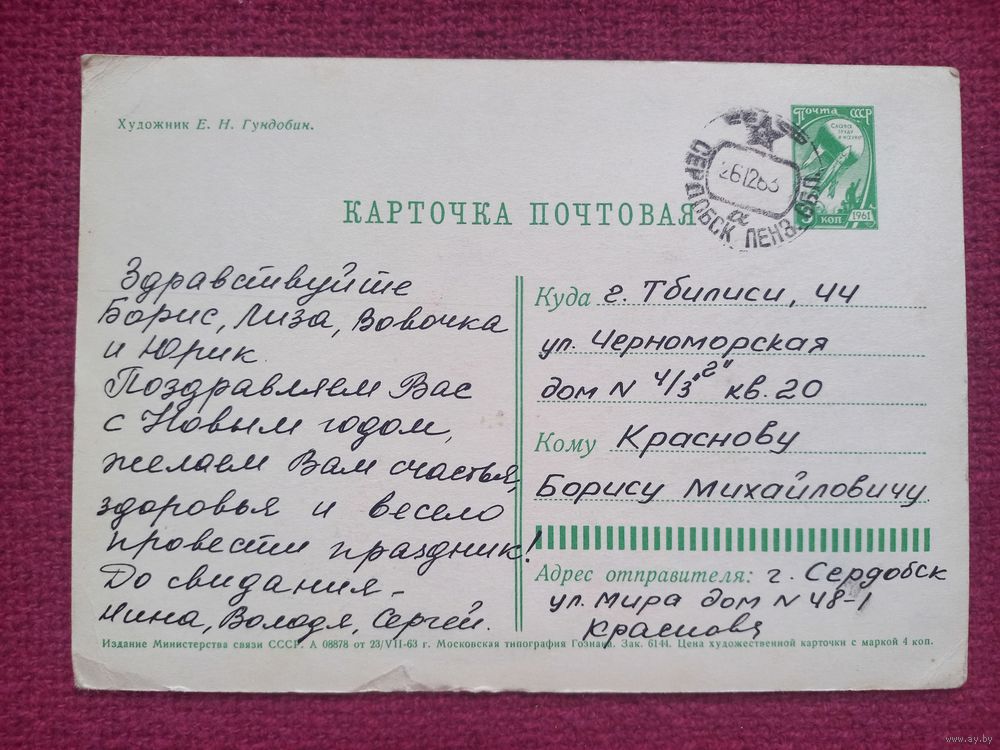 Художник Е. Н. Гундобин.
Почта СССР
Слава
труду
и науке
КОП
1961
СЕРДОБСК ПЕНЗ. ОБЛ.
261263
а
КАРТОЧКА ПОЧТОВАЯ
Здравствуйте
Борис, Лиза, Вовочка
и Юрик.
Поздравляем Вас
с Новым годом,
желаем Вам счастья,
здоровья и весело
провести праздник!
До свидания –
Нина, Володя, Сергей.
Куда г. Тбилиси, 44
ул. Черноморская
дом N 4/3 "г" кв. 20
Кому Краснову
Борису Михайловичу
Адрес отправителя: г. Сердобск
ул. Мира дом N 48-1
Краснова
Издание Министерства связи СССР. А 08878 от 23/VII-63 г. Московская типография Гознака. Зак. 6144. Цена художественной карточки с маркой 4 коп.
www.ay.by